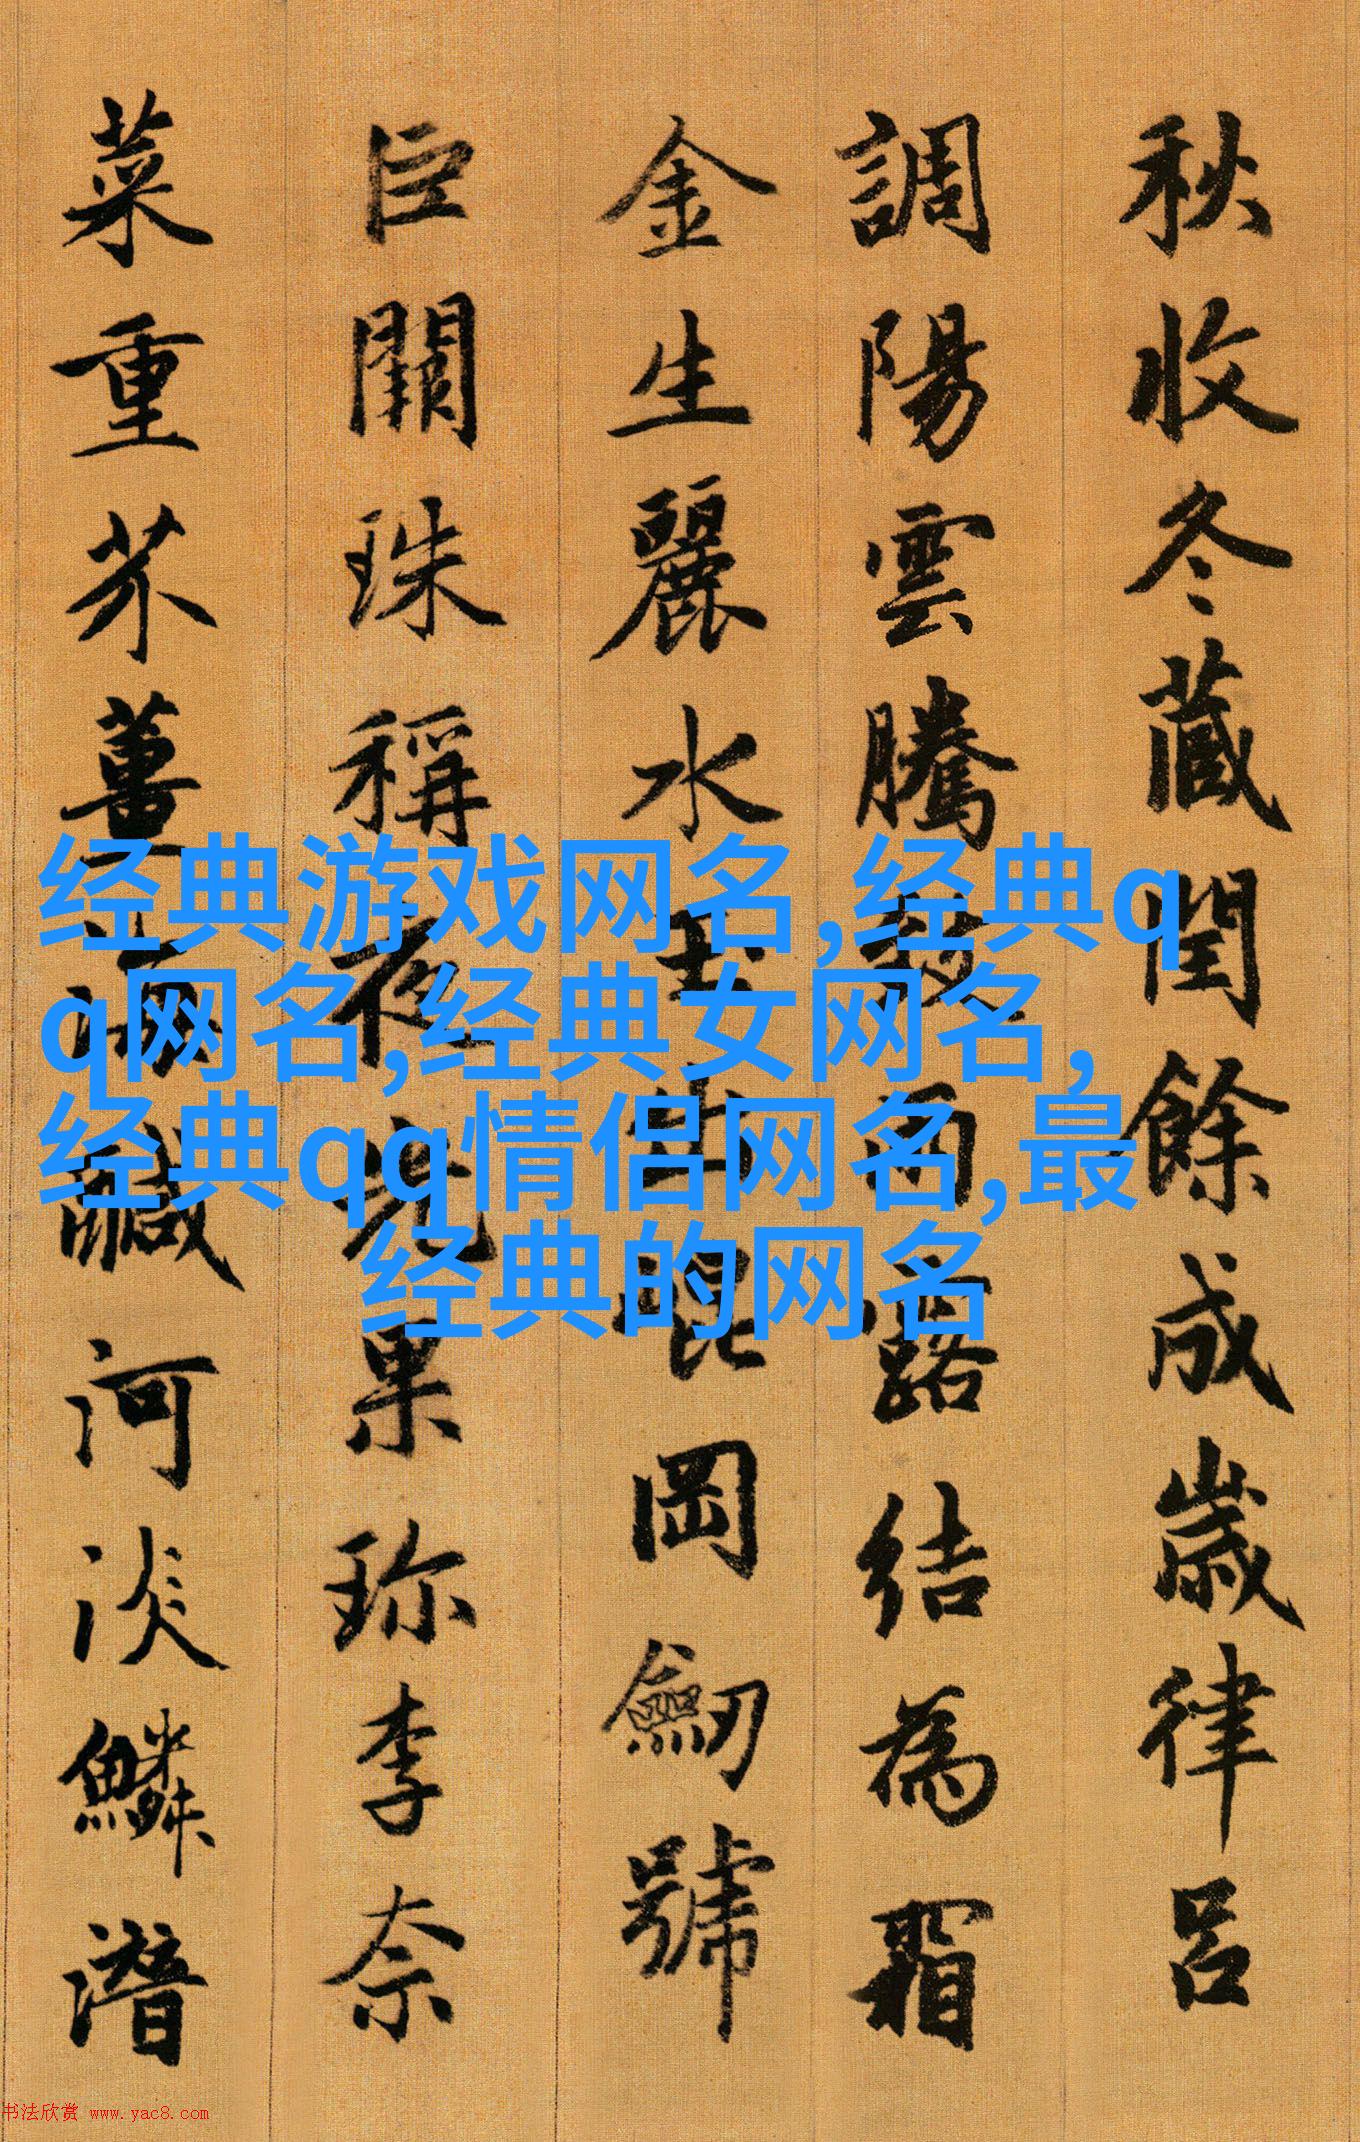 秋收冬藏閏餘成歲律呂
調陽雲騰致雨露結為霜
金生麗水玉出崐岡劒號
巨闕珠稱夜光果珎李奈
菜重芥薑海鹹河淡鱗潛
经典游戏网名,经典q
q网名,经典女网名,
经典qq情侣网名,最
经典的网名
书法欣赏 www.yac8.com